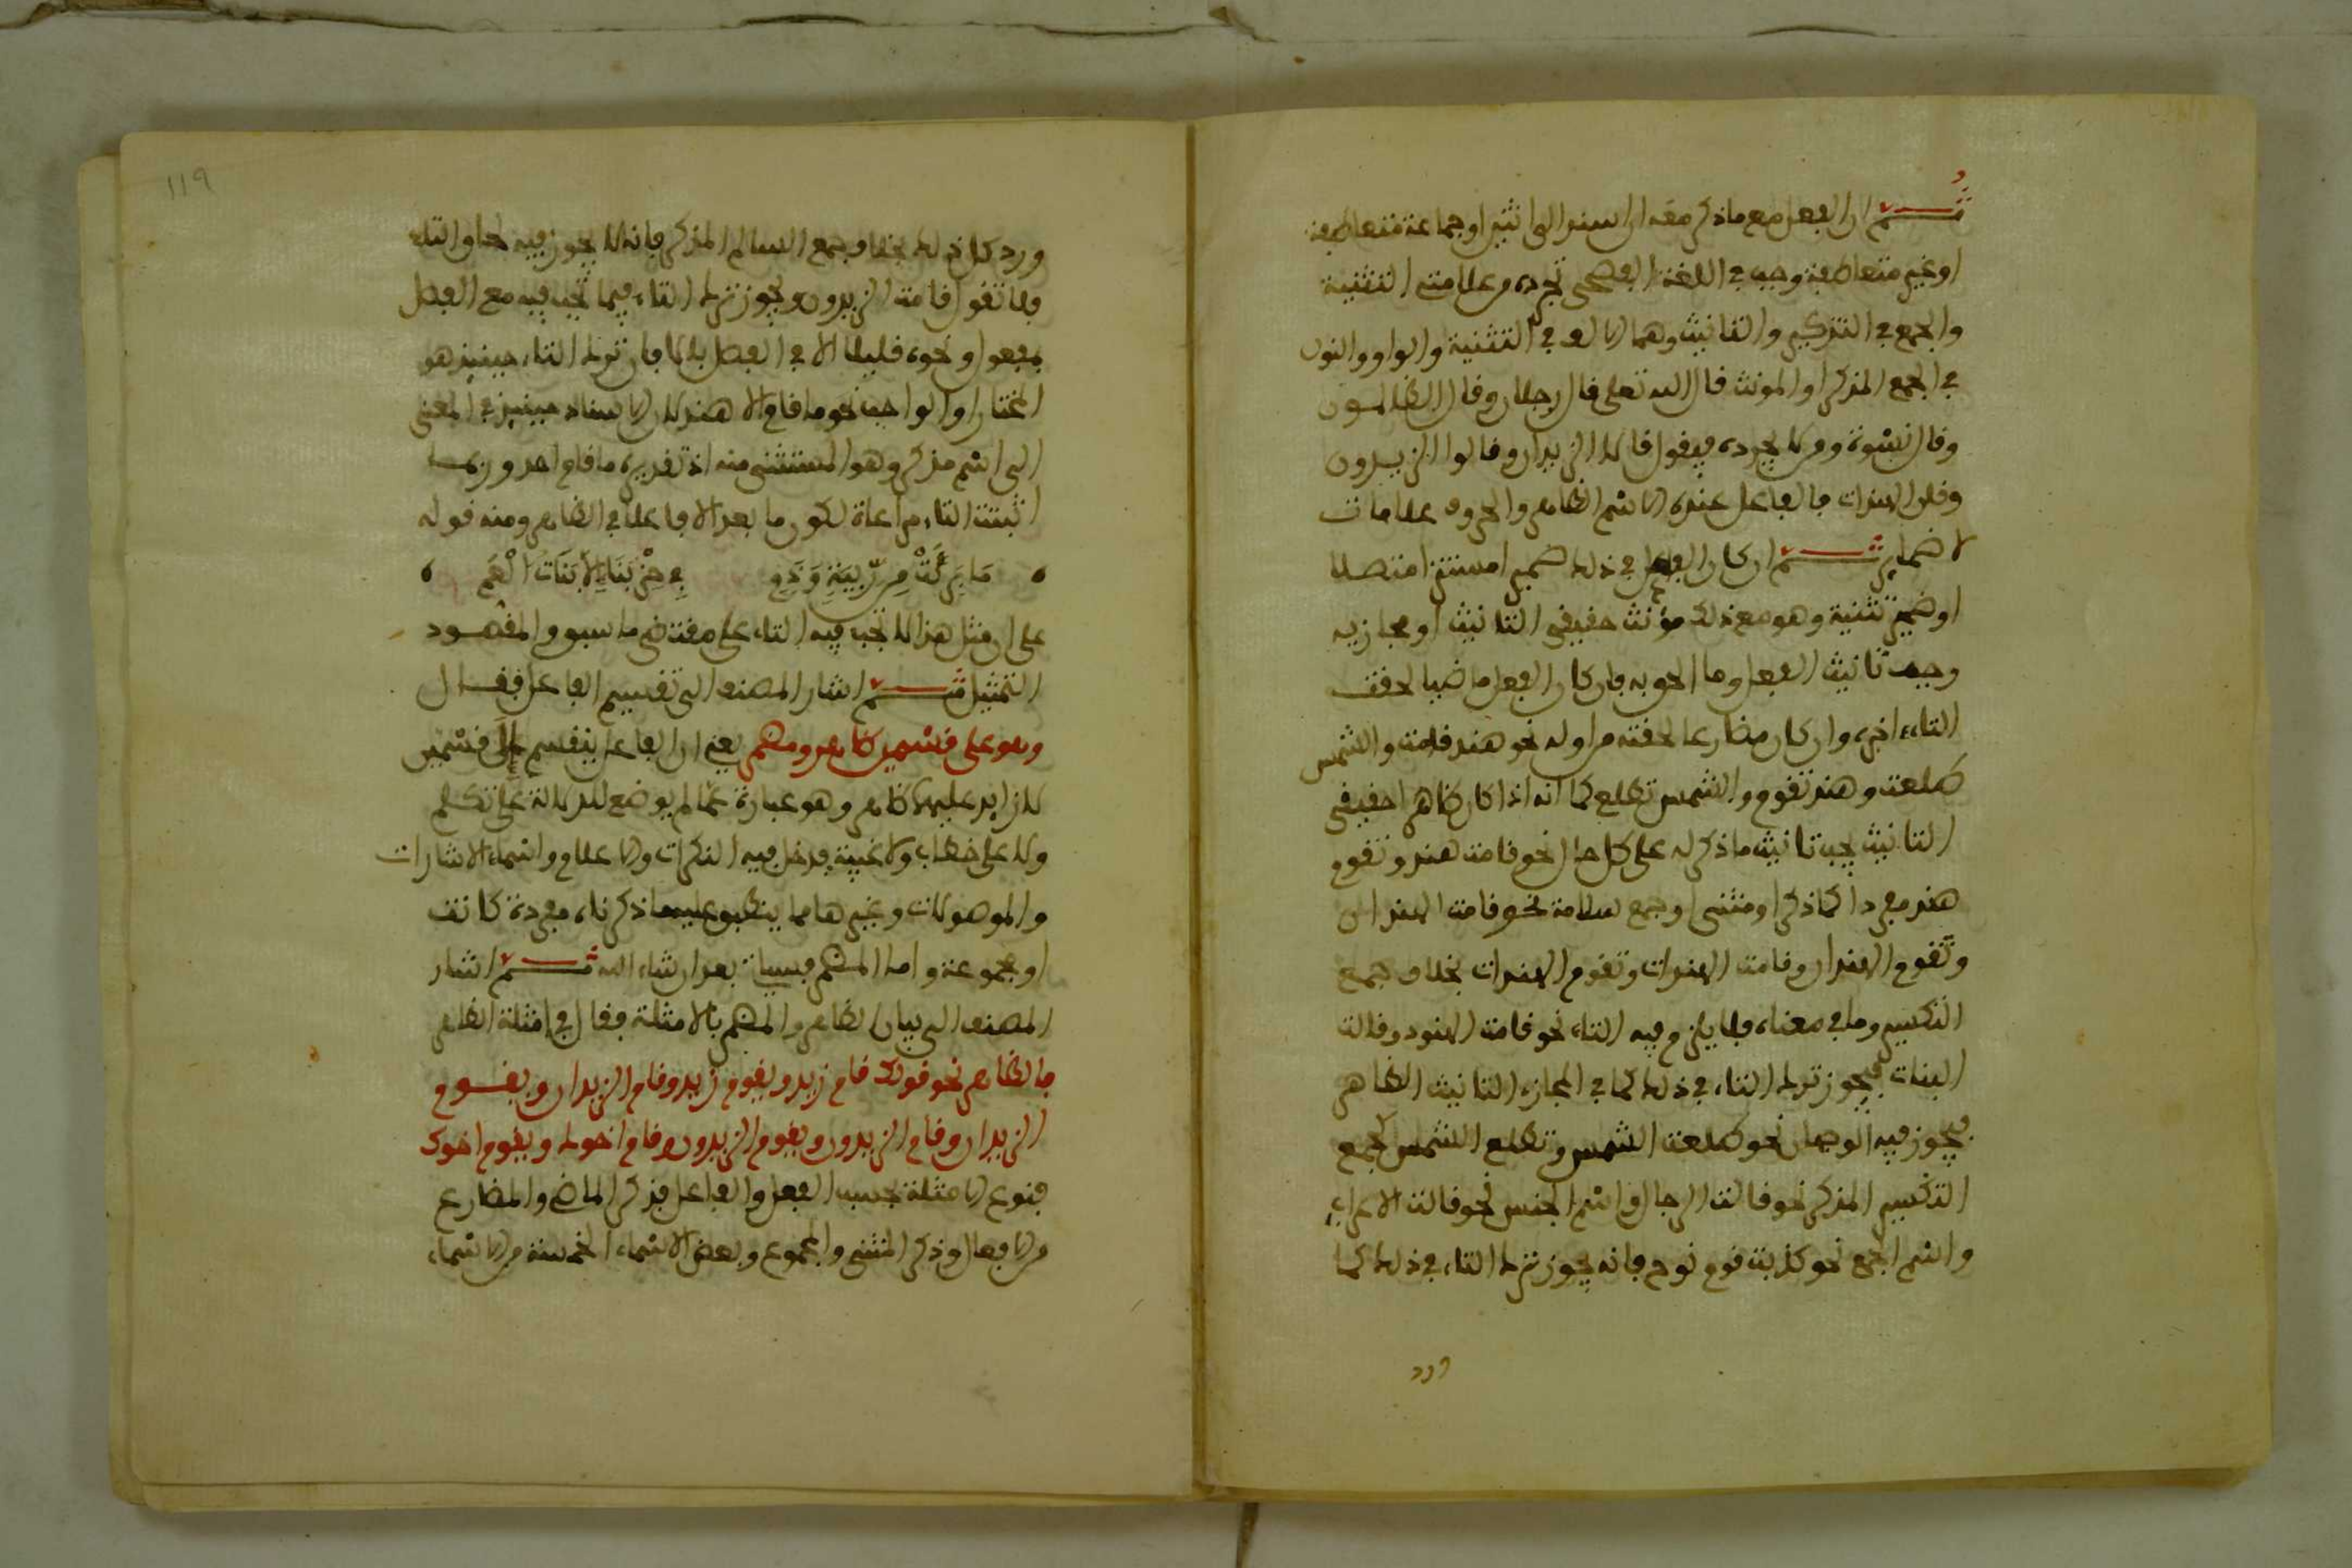 ثم ان الفعل مع ما ذكر معه ان اسند الى اثنين او جماعة متعاطفة
او غير متعاطفة وجب في اللغة الفصحى تجرده من علامتي التثنية
والجمع في التذكير والتانيث وهما الالف في التثنية والواو والنون
في الجمع المذكر او المونث قال الله تعلى قال رجلان وقال الظالمون
وقال نسوة ومن لا يجرده فيقول قالا الزيدان وقالوا الزيدون
وقلن الهندات فالفاعل عنده الاسم الظاهر والحروف علامات
لا ضماير ثم ان كان الفاعل في ذلك ضميرا مستترا متصلا
او ضمير تثنية وهو مع ذلك مؤنث حقيقي التانيث او مجازيه
وجب تانيث الفعل وما الحق به فان كان الفعل ماضيا لحقت
التاء اخره وان كان مضارعا لحقته من اوله نحو هند قامت والشمس
طلعت وهند تقوم والشمس تطلع كما انه اذا كان ظاهرا حقيقي
التانيث يجب تانيث ما ذكر له على كل حال نحو قامت هند وتقوم
هند مفردا كما ذكر او مثنى او جمع سلامة نحو قامت الهندان
وتقوم الهندان وقامت الهندات وتقوم الهندات بخلاف جمع
التكسير وما في معناه فلا يلزم فيه التاء نحو قامت الهنود وقالت
البنات فيجوز ترك التاء في ذلك كما في المجازي التانيث الظاهر
فيجوز فيه الوجهان نحو طلعت الشمس وتطلع الشمس كجمع
التكسير المذكر نحو قالت الرجال واسم الجنس نحو قالت الاعراب
واسم الجمع نحو كذبت قوم نوح فانه يجوز ترك التاء في ذلك كما
ورد
١١٩
ورد كل ذلك بخلاف جمع السالم المذكر فانه لا يجوز فيه لحاق التاء
فلا تقول قامت الزيدون ويجوز ترك التاء فيما تجب فيه مع الفصل
بمفعول ونحوه قليلا الا في الفصل بالا فان ترك التاء حينيذ هو
المختار او الواجب نحو ما قام الا هند لان الاسناد حينيذ في المعنى
الى اسم مذكر وهو المستثنى منه اذ تقديره ما قام احد وربما
اثبتت التاء مراعاة لكون ما بعد الا فاعلا في الظاهر ومنه قوله
مَا بَرِئَتْ مِن رِّيبَةٍ وَذَمِ فِي حَرْبِنَا إِلاَّ بَنَاتُ الْعَمِ
على ان مثل هذا لا تجب فيه التاء على مقتضى ما سبق والمقصود
التمثيل ثم اشار المصنف الى تقسيم الفاعل فقال
وهو على قسمين ظاهر ومضمر يعني ان الفاعل ينقسم إلى قسمين
لا زايد عليهما ظاهر وهو عبارة عما لم يوضع للدلالة على تكلم
ولا على خطاب ولا غيبة فدخل فيه النكرات والاعلام واسماء الاشارات
والموصولات وغيرها مما ينطبق عليه ما ذكرناه مفردة كانت
او مجموعة واما المضمر فسيات بعد ان شاء الله ثم اشار
المصنف الى بيان الظاهر والمضمر بالامثلة فقال في امثلة الظاهر
فالظاهر نحو قولك قام زيد ويقوم زيد وقام الزيدان ويقوم
الزيدان وقام الزيدون ويقوم الزيدون وقام اخوك ويقوم اخوك
فنوع الامثلة بحسب الفعل والفاعل فذكر الماضي والمضارع
من الافعال وذكر المثنى والمجموع وبعض الاسماء الخمسة من الاسماء